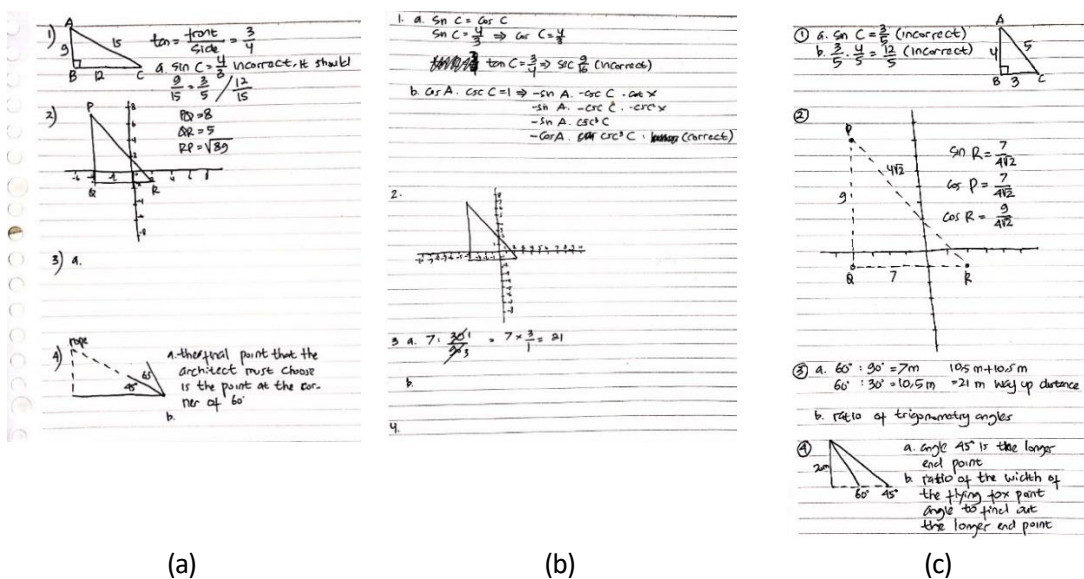 1)
A
9
15
B
12
C
tan = front / side = 3/4
a. sin C = 4/3 incorrect, it should
9/15 = 3/5 / 12/15
2)
P
PQ = 8
QR = 5
RP = √89
Q
R
3) a.
4)
rope
45°
65
a. the final point that the
architect must choose
is the point at the cor-
ner of 60°
b.
(a)
1. a. sin C = cos C
sin C = 4/3 ⇒ cos C = 4/3
tan C = 3/4 ⇒ sec 9/16 (incorrect)
b. cos A . csc C = 1 ⇒ -sin A. -csc C . cot x
-sin A. -csc C . -csc² x
-sin A. csc³ C
-cos A. csc³ C . (correct)
2.
3 a. 7 : 30 1 / 90 3 = 7 x 3/1 = 21
b.
4.
(b)
① a. sin C = 3/5 (incorrect)
b. 3/5 . 4/5 = 12/5 (incorrect)
A
4
5
B
3
C
②
P
4√2
9
Q
7
R
sin R = 7/4√2
cos P = 7/4√2
cos R = 9/4√2
③ a. 60° : 90° = 7m 10,5 m + 10,5 m
60° : 30° = 10,5 m = 21 m way up distance
b. ratio of trigonometry angles
④
2m
60°
45°
a. angle 45° is the longer
end point
b. ratio of the width of
the flying fox point
angle to find out
the longer end point
(c)